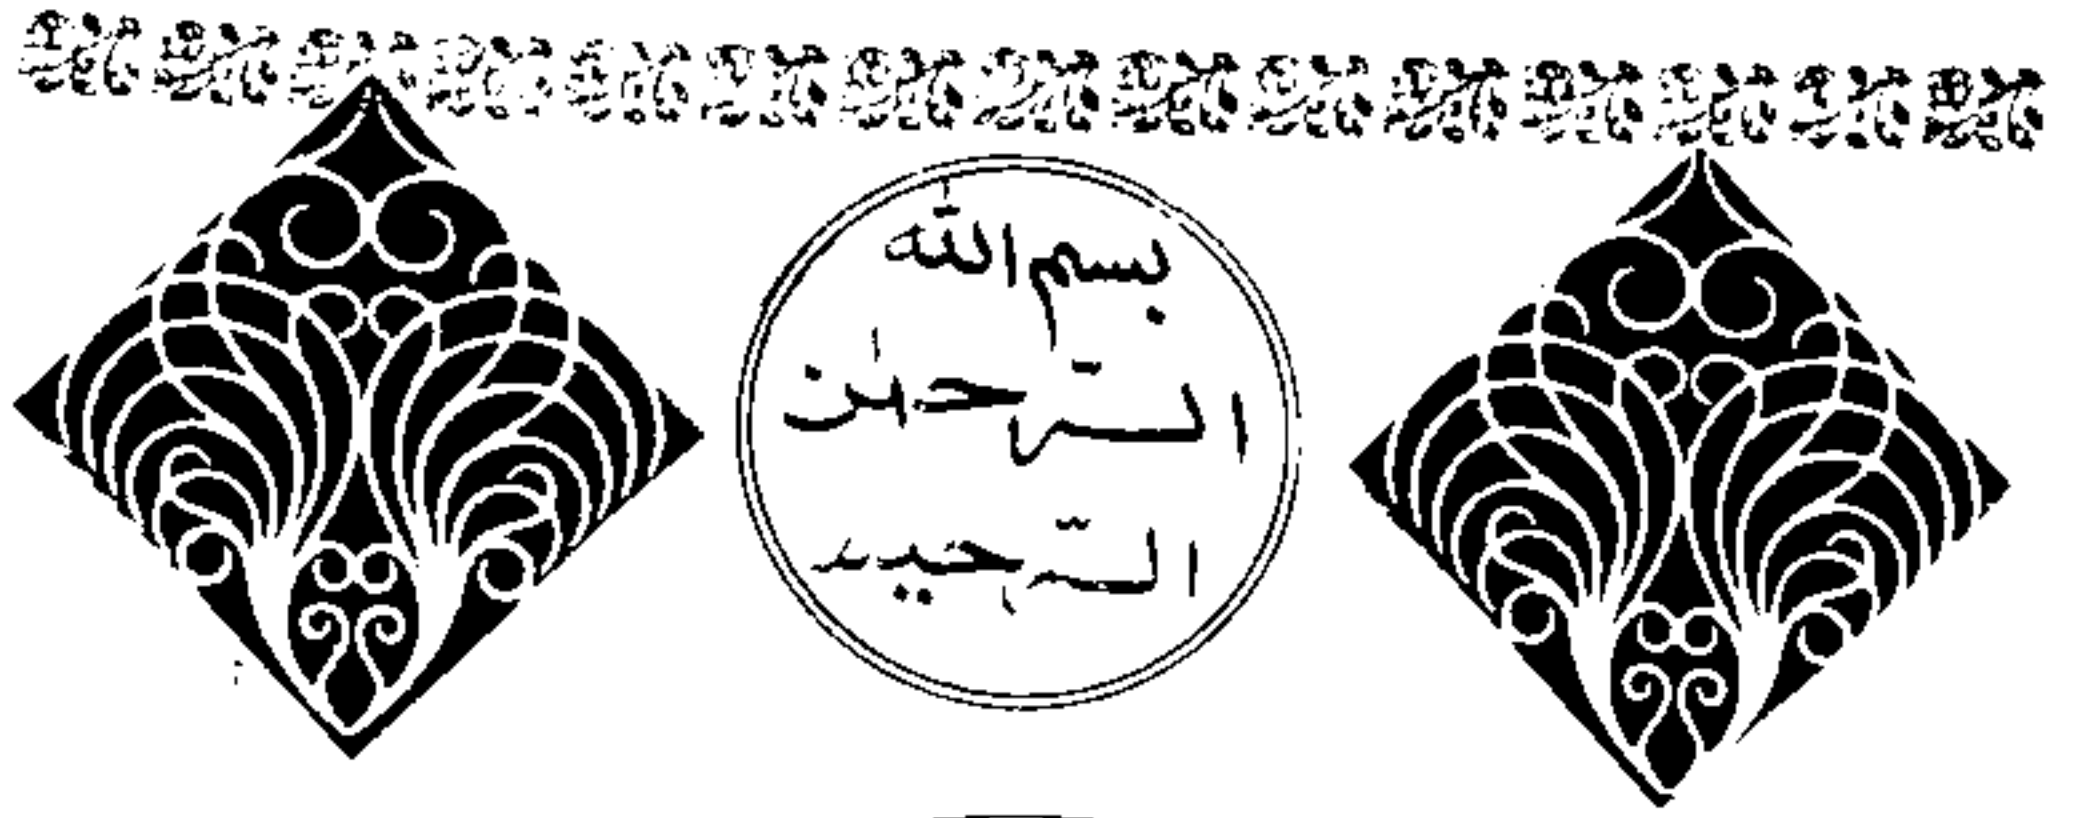 بسم الله
الرحمٰن
الرحيم